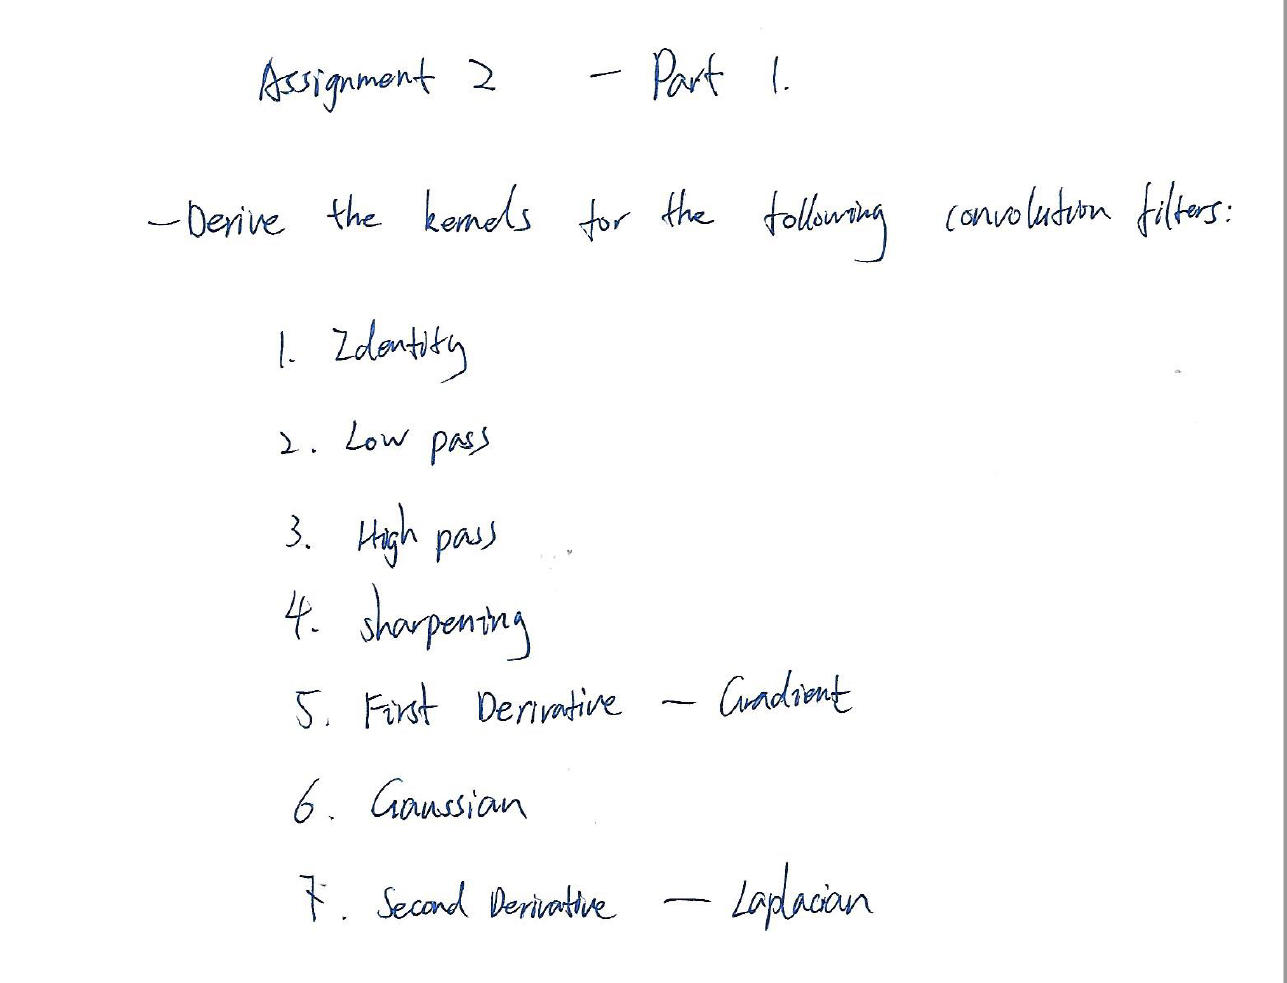 Assignment 2 - Part 1.
- Derive the kernels for the following convolution filters:
1. Identity
2. Low pass
3. High pass
4. sharpening
5. First Derivative - Gradient
6. Gaussian
7. Second Derivative - Laplacian